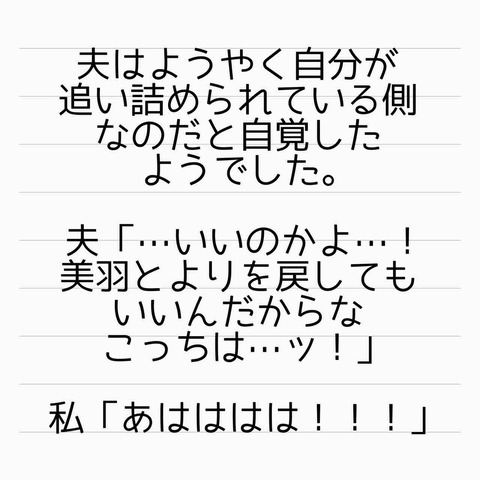 夫はようやく自分が
追い詰められている側
なのだと自覚した
ようでした。
夫「…いいのかよ…！
美羽とよりを戻しても
いいんだからな
こっちは…ッ！」
私「あはははは！！！」